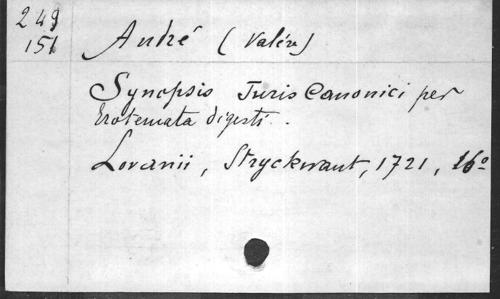 249
151
André (Valère)
Synopsis Juris Canonici per
Erotemata digesti.
Lovanii, Stryckwant, 1721, 16º